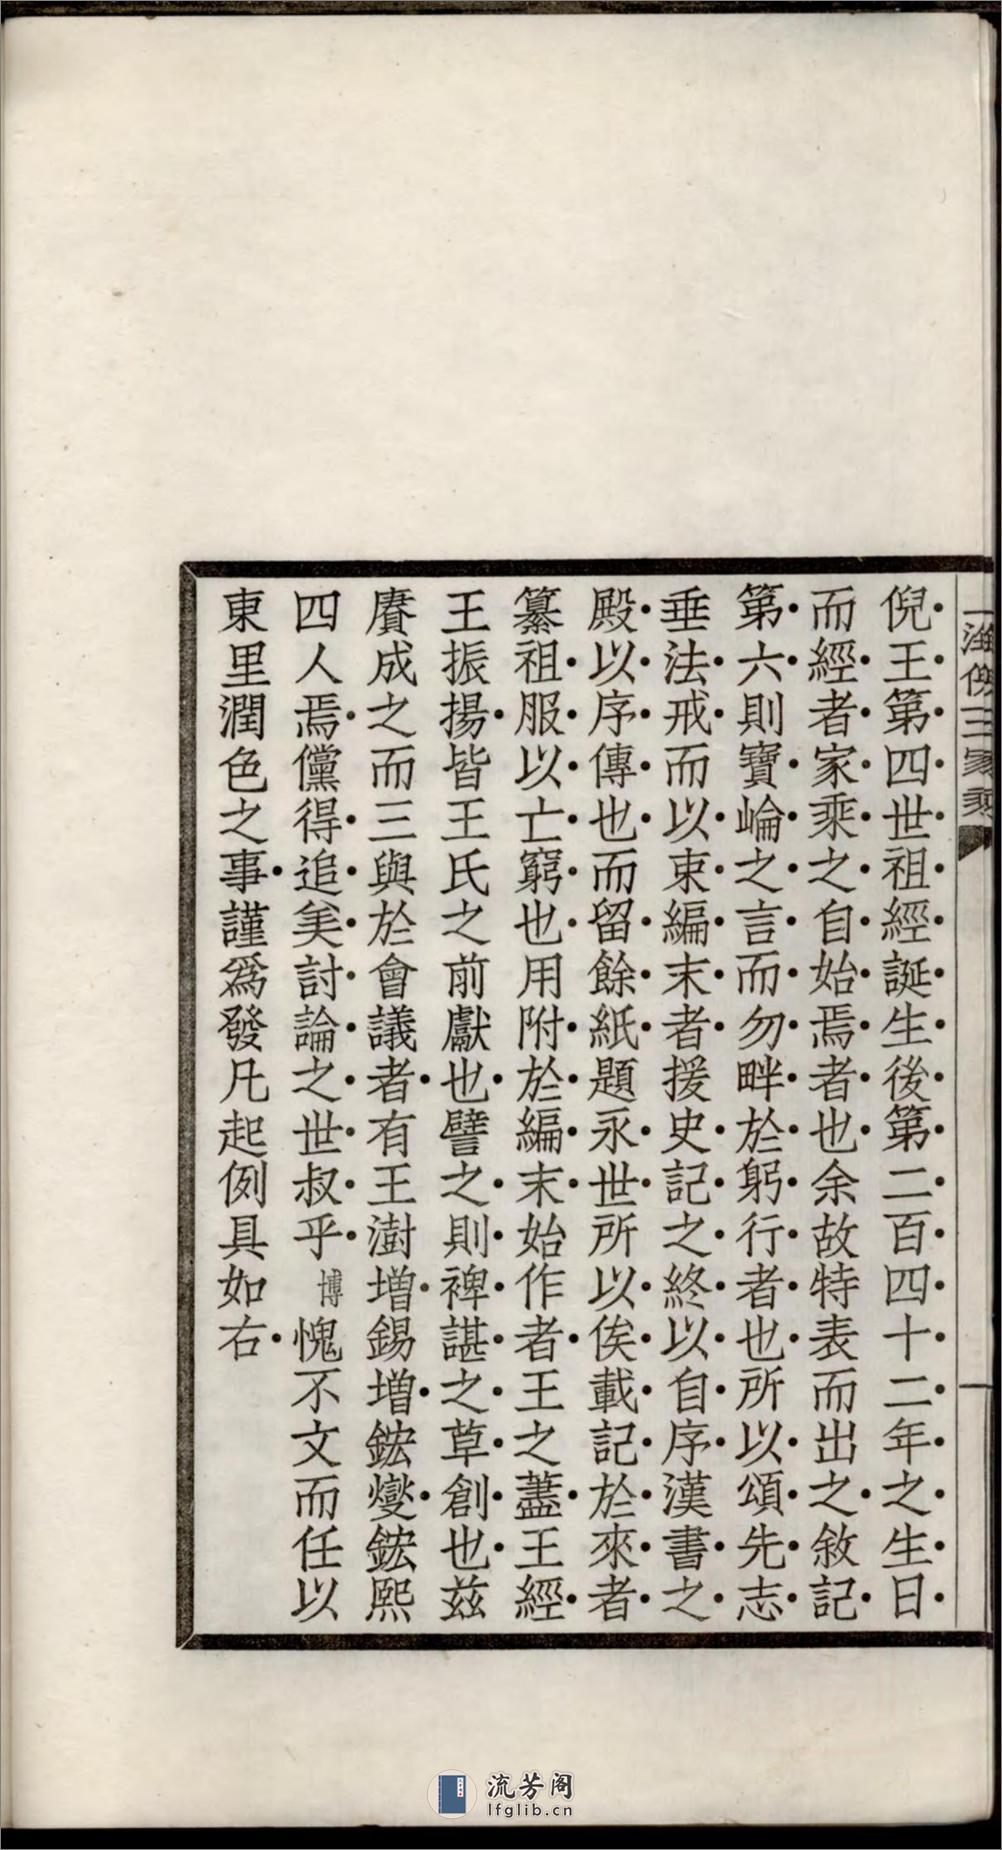 倪王第四世祖經誕生後第二百四十二年之生日
而經者家乘之自始焉者也余故特表而出之敘記
第六則寶崘之言而勿畔於躬行者也所以頌先志
垂法戒而以束編末者援史記之終以自序漢書之
殿以序傳也而留餘紙題永世所以俟載記於來者
纂祖服以亡窮也用附於編末始作者王之藎王經
王振揚皆王氏之前獻也譬之則裨諶之草創也茲
賡成之而三與於會議者有王澍增錫增鋐燮鋐熙
四人焉儻得追矣討論之世叔乎博愧不文而任以
東里潤色之事謹為發凡起例具如右
三家乘
一
流芳阁
lfglib.cn